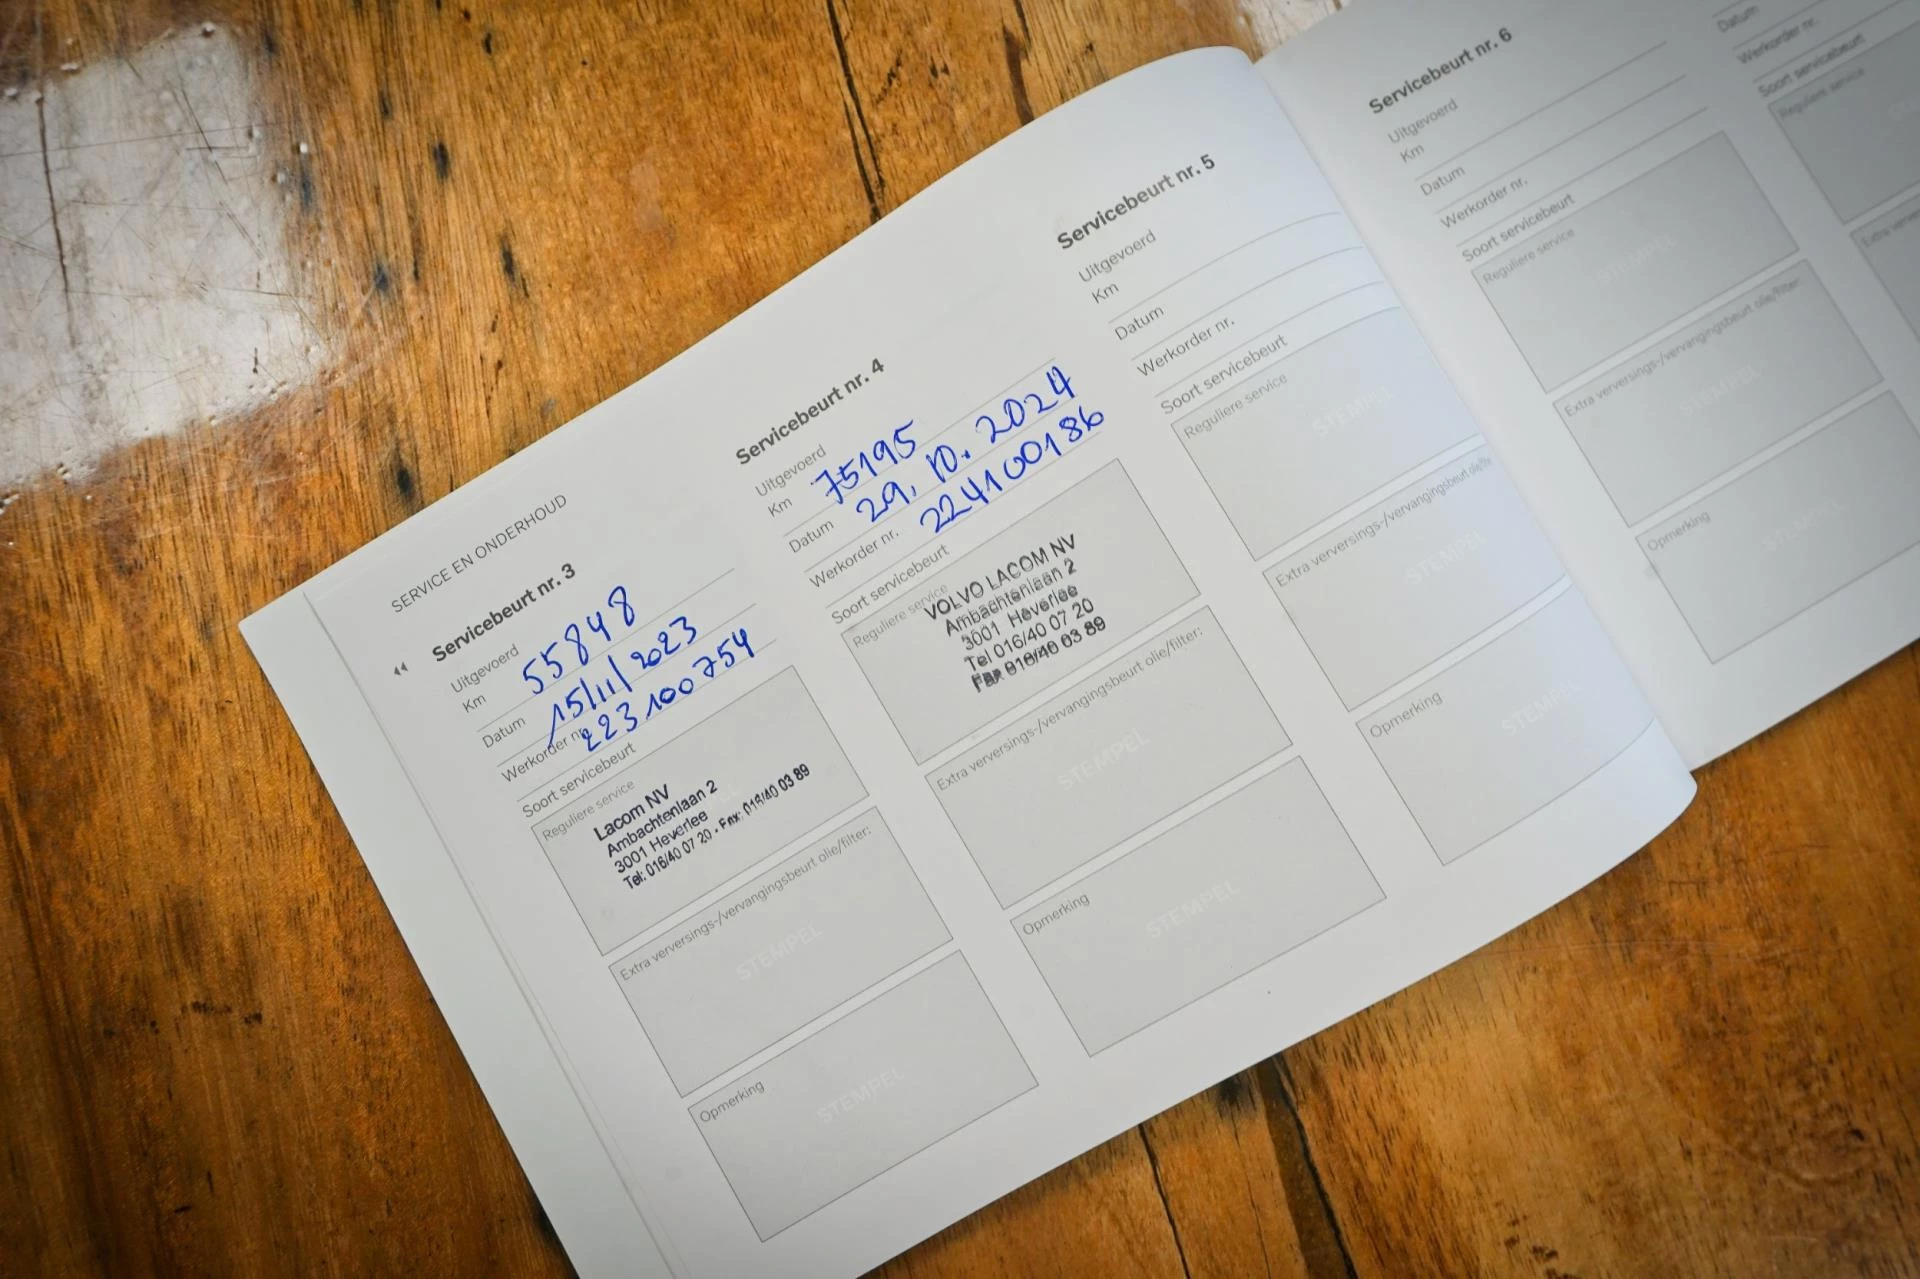 SERVICE EN ONDERHOUD
Servicebeurt nr. 3
Uitgevoerd
Km 55848
Datum 15/11/2023
Werkorder nr. 223100754
Soort servicebeurt
Reguliere service
Lacom NV
Ambachtenlaan 2
3001 Heverlee
Tel: 016/40 07 20 - Fax: 016/40 03 89
Extra verversings-/vervangingsbeurt olie/filter:
STEMPEL
Opmerking
STEMPEL
Servicebeurt nr. 4
Uitgevoerd
Km 75195
Datum 29.10.2024
Werkorder nr. 224100186
Soort servicebeurt
Reguliere service
VOLVO LACOM NV
Ambachtenlaan 2
3001 Heverlee
Tel 016/40 07 20
Fax 016/40 03 89
Extra verversings-/vervangingsbeurt olie/filter:
STEMPEL
Opmerking
STEMPEL
Servicebeurt nr. 5
Uitgevoerd
Km
Datum
Werkorder nr.
Soort servicebeurt
Reguliere service
STEMPEL
Extra verversings-/vervangingsbeurt olie/filter:
STEMPEL
Opmerking
STEMPEL
Servicebeurt nr. 6
Uitgevoerd
Km
Datum
Werkorder nr.
Soort servicebeurt
Reguliere service
STEMPEL
Extra verversings-/vervangingsbeurt olie/filter:
STEMPEL
Opmerking
STEMPEL
Datum
Werkorder nr.
Soort servicebeurt
Reguliere service